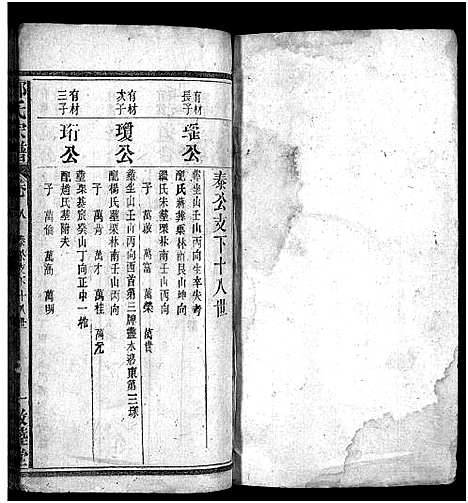 泰公支下十八世
有材
長子
瑬公
葬坐山壬山丙向生卒失考
配氏蔣葬栗林南艮山坤向
繼氏朱墓栗林南壬山丙向
子 萬啟 萬富 萬榮 萬貴
有材
次子
瓊公
葬坐山壬山丙向酉首第三牌盡水港東第三塚
配楊氏墓栗林南壬山丙向
子 萬肯 萬才 萬桂 萬元
有材
三子
珩公
墓栗基嶺癸山丁向正中一棺
配趙氏墓附夫
子 萬倫 萬滿 萬明
氏宗譜 卷八 泰公支下十八世 一